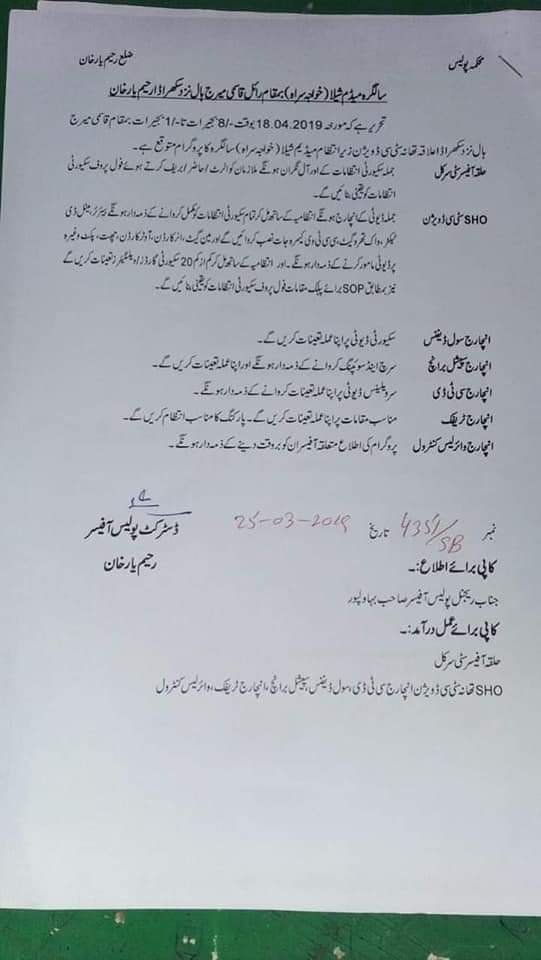 محکمہ پولیس ضلع رحیم یار خان
سالگرہ میڈم شیلا (خواجہ سراہ) بمقام رائل قاسمی میرج ہال نزد سکھر اڈا رحیم یار خان
تحریر ہے کہ مورخہ 18.04.2019 بوقت -/8 بجے رات تا -/1 بجے رات بمقام قاسمی میرج
ہال نزد سکھر اڈا علاقہ تھانہ سٹی سی ڈویژن زیر انتظام میڈیم شیلا (خواجہ سراہ) سالگرہ کا پروگرام متوقع ہے۔
حلقہ آفیسر سٹی سرکل جملہ سکیورٹی انتظامات کے اور آل نگران ہونگے ملازمان کو الرٹ / حاضر / بریف کرتے ہوئے فول پروف سکیورٹی
انتظامات کو یقینی بنائیں گے۔
SHO سٹی سی ڈویژن جملہ ڈیوٹی کے انچارج ہونگے انتظامیہ کے ساتھ مل کر تمام سکیورٹی انتظامات کو مکمل کروانے کے ذمہ دار ہونگے بیرئیر، میٹل ڈی
ٹیکٹر، واک تھرو گیٹ، سی سی ٹی وی کیمرہ جات نصب کروائیں گے اور مین گیٹ، انر کارڈن، آوٹر کارڈن، چھت، پکٹ وغیرہ
پر ڈیوٹی مامور کرنے کے ذمہ دار ہونگے۔ اور انتظامیہ کے ساتھ مل کر کم از کم 20 سکیورٹی گارڈز / ولینٹئیرز تعینات کریں گے
نیز بمطابق SOP برائے پبلک مقامات فول پروف سکیورٹی انتظامات کو یقینی بنائیں گے۔
انچارج سول ڈیفنس سکیورٹی ڈیوٹی پر اپنا عملہ تعینات کریں گے۔
انچارج سپیشل برانچ سرچ اینڈ سوئپنگ کروانے کے ذمہ دار ہونگے اور اپنا عملہ تعینات کریں گے۔
انچارج سی ٹی ڈی سرویلینس ڈیوٹی پر اپنا عملہ تعینات کروانے کے ذمہ دار ہونگے۔
انچارج ٹریفک مناسب مقامات پر اپنا عملہ تعینات کریں گے۔ پارکنگ کا مناسب انتظام کریں گے۔
انچارج وائرلیس کنٹرول پروگرام کی اطلاع متعلقہ آفیسران کو بروقت دینے کے ذمہ دار ہونگے۔
ڈسٹرکٹ پولیس آفیسر
رحیم یار خان
نمبر 4351/SB تاریخ 25-03-2019
کاپی برائے اطلاع:۔
جناب ریجنل پولیس آفیسر صاحب بہاولپور
کاپی برائے عمل درآمد:۔
حلقہ آفیسر سٹی سرکل
SHO تھانہ سٹی سی ڈویژن انچارج سی ٹی ڈی، سول ڈیفنس، سپیشل برانچ، انچارج ٹریفک، وائرلیس کنٹرول